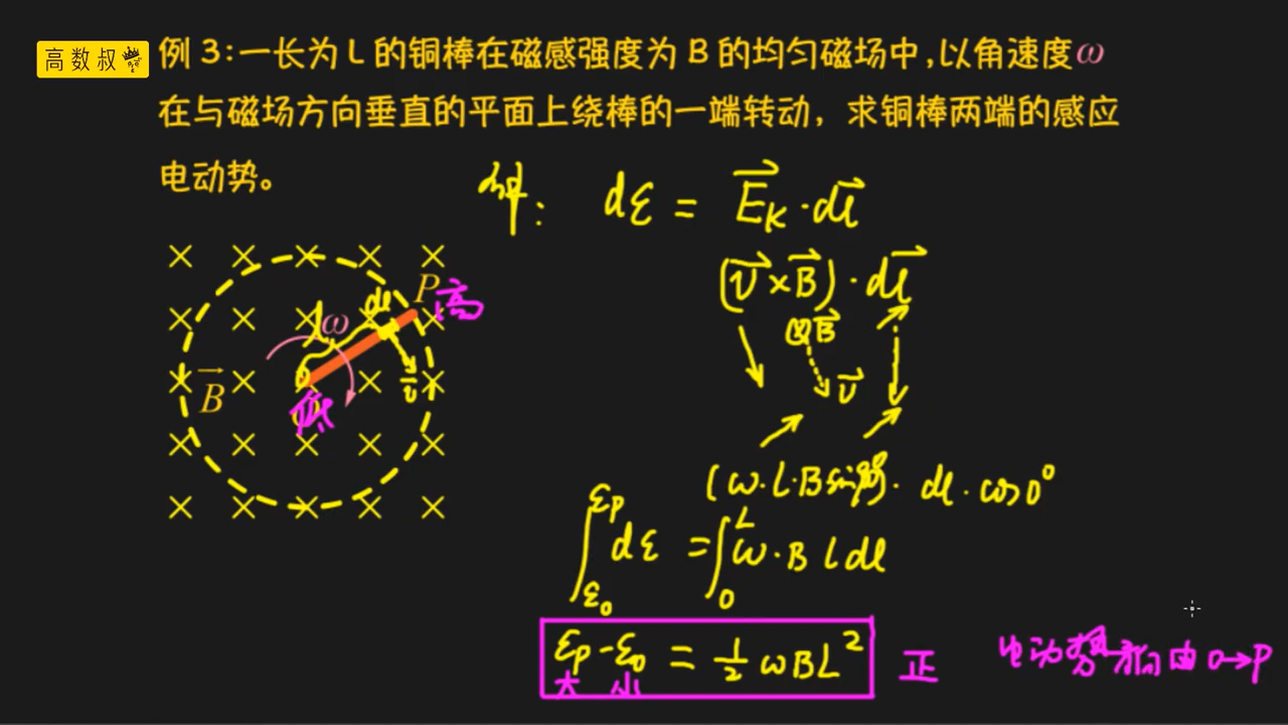 高数叔
例 3:一长为 L 的铜棒在磁感强度为 B 的均匀磁场中,以角速度ω
在与磁场方向垂直的平面上绕棒的一端转动，求铜棒两端的感应
电动势。
解: dε = E⃗k · dl⃗
(v⃗ × B⃗) · dl⃗
⊗B⃗
v⃗
dl P 高
L ω
B⃗ O v⃗
低
(ω·l·B sin90°· dl · cos0°
∫ε₀^εp dε = ∫₀^L ω·B l dl
εp - ε₀ = 1/2 ωBL² 正 电动势方向由 O→P
大 小